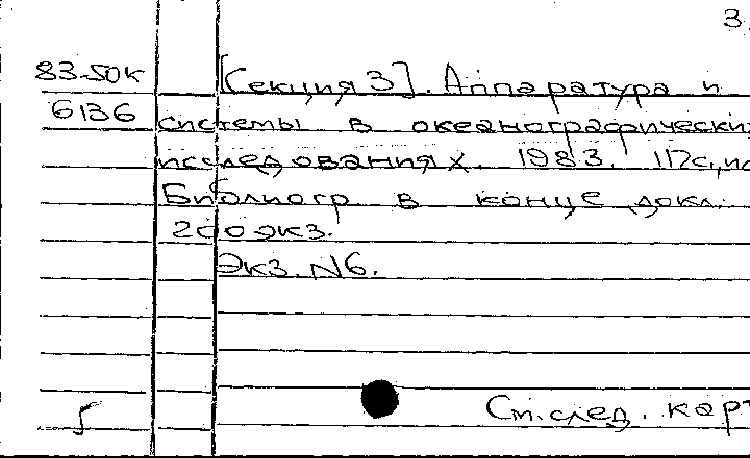 3
83-50к [Секция 3]. Аппаратура и
6136 системы в океанографически
исследованиях. 1983. 117с., ил
Библиогр в конце докл.
200 экз.
Экз. N6.
5 См. след. карт